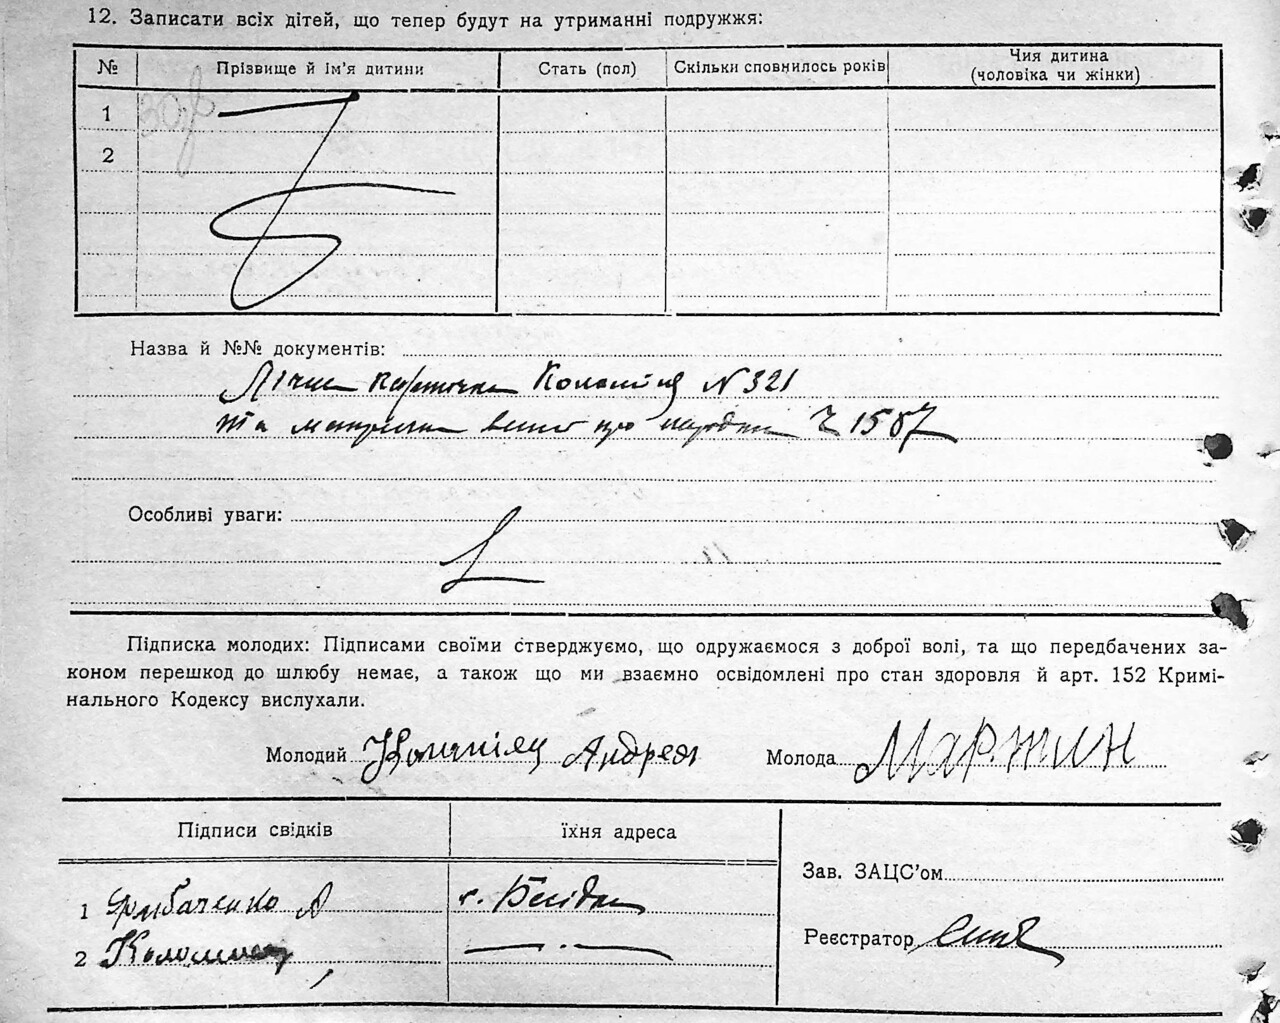 12. Записати всіх дітей, що тепер будут на утриманні подружжя:
№ Прізвище й ім'я дитини Стать (пол) Скільки сповнилось років Чия дитина (чоловіка чи жінки)
1
2
Назва й №№ документів:
карточка N 321
та про 1587
Особливі уваги:
Підписка молодих: Підписами своїми стверджуємо, що одружаємося з доброї волі, та що передбачених за-
коном перешкод до шлюбу немає, а також що ми взаємно освідомлені про стан здоровля й арт. 152 Кримі-
нального Кодексу вислухали.
Молодий Андрей Молода Мартин
Підписи свідків їхня адреса
Зав. ЗАЦС'ом
1
Реєстратор
2 Коломиец